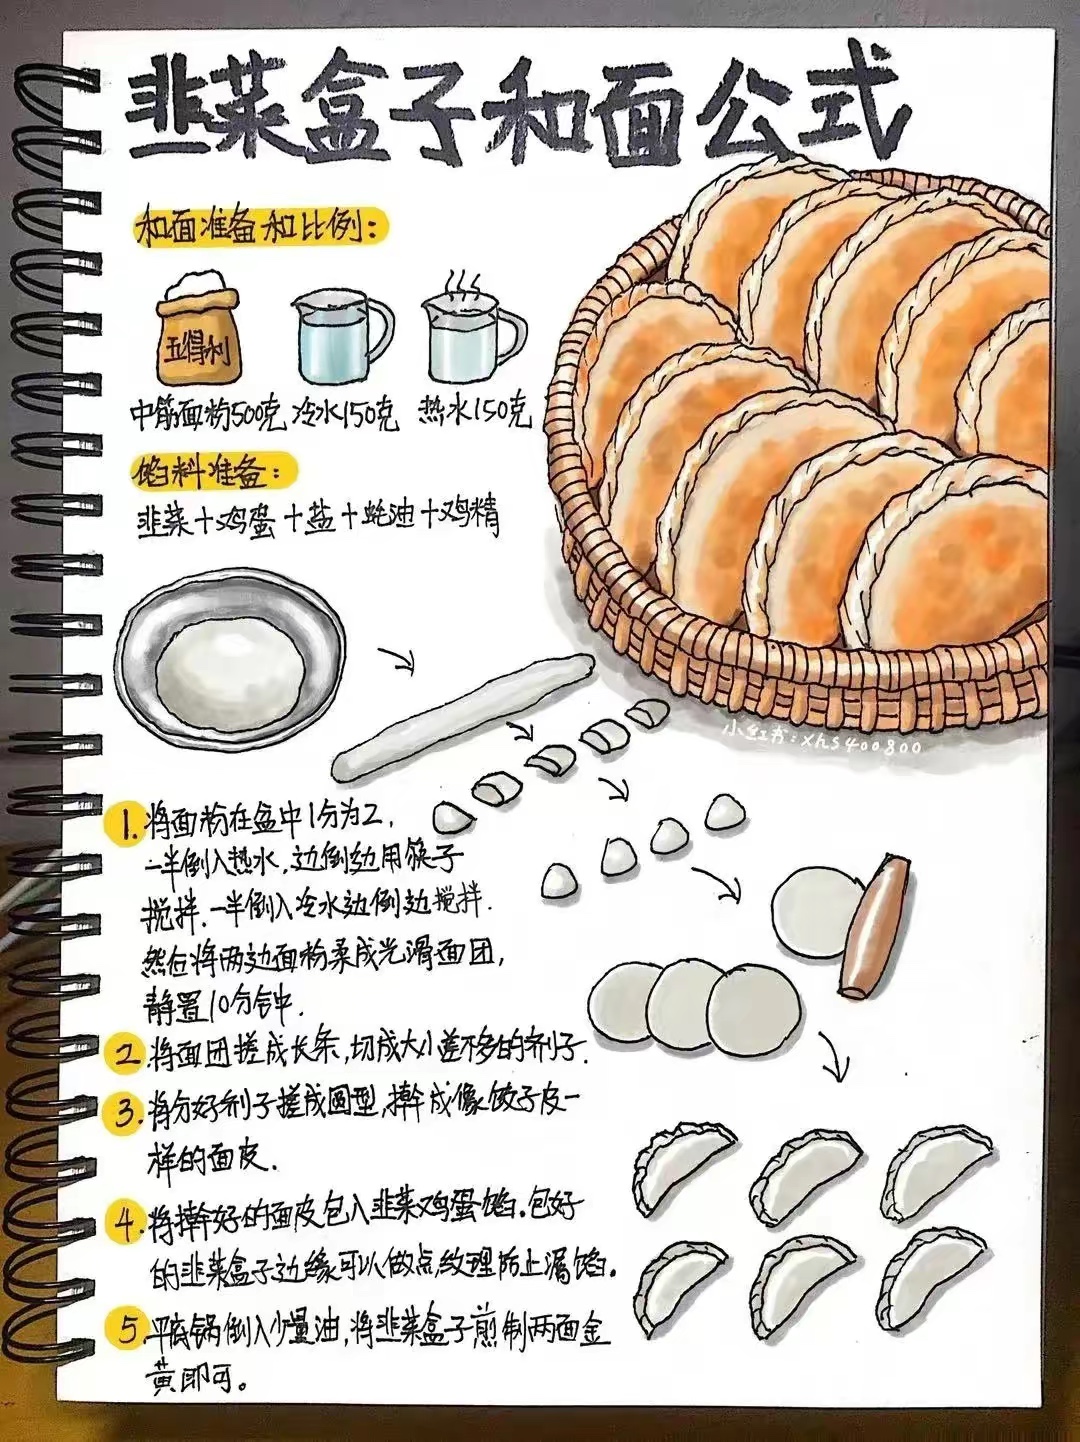 韭菜盒子和面公式
和面准备和比例:
五得利
中筋面粉500克 冷水150克 热水150克
馅料准备:
韭菜+鸡蛋+盐+蚝油+鸡精
小红书:xhs400800
1.将面粉在盆中1分为2,
一半倒入热水,边倒边用筷子
搅拌.一半倒入冷水边倒边搅拌.
然后将两边面粉柔成光滑面团,
静置10分钟.
2.将面团搓成长条,切成大小差不多的剂子.
3.将分好剂子搓成圆型,擀成像饺子皮一
样的面皮.
4.将擀好的面皮包入韭菜鸡蛋馅.包好
的韭菜盒子边缘可以做点纹理防止漏馅。
5.平底锅倒入少量油,将韭菜盒子煎制两面金
黄即可。